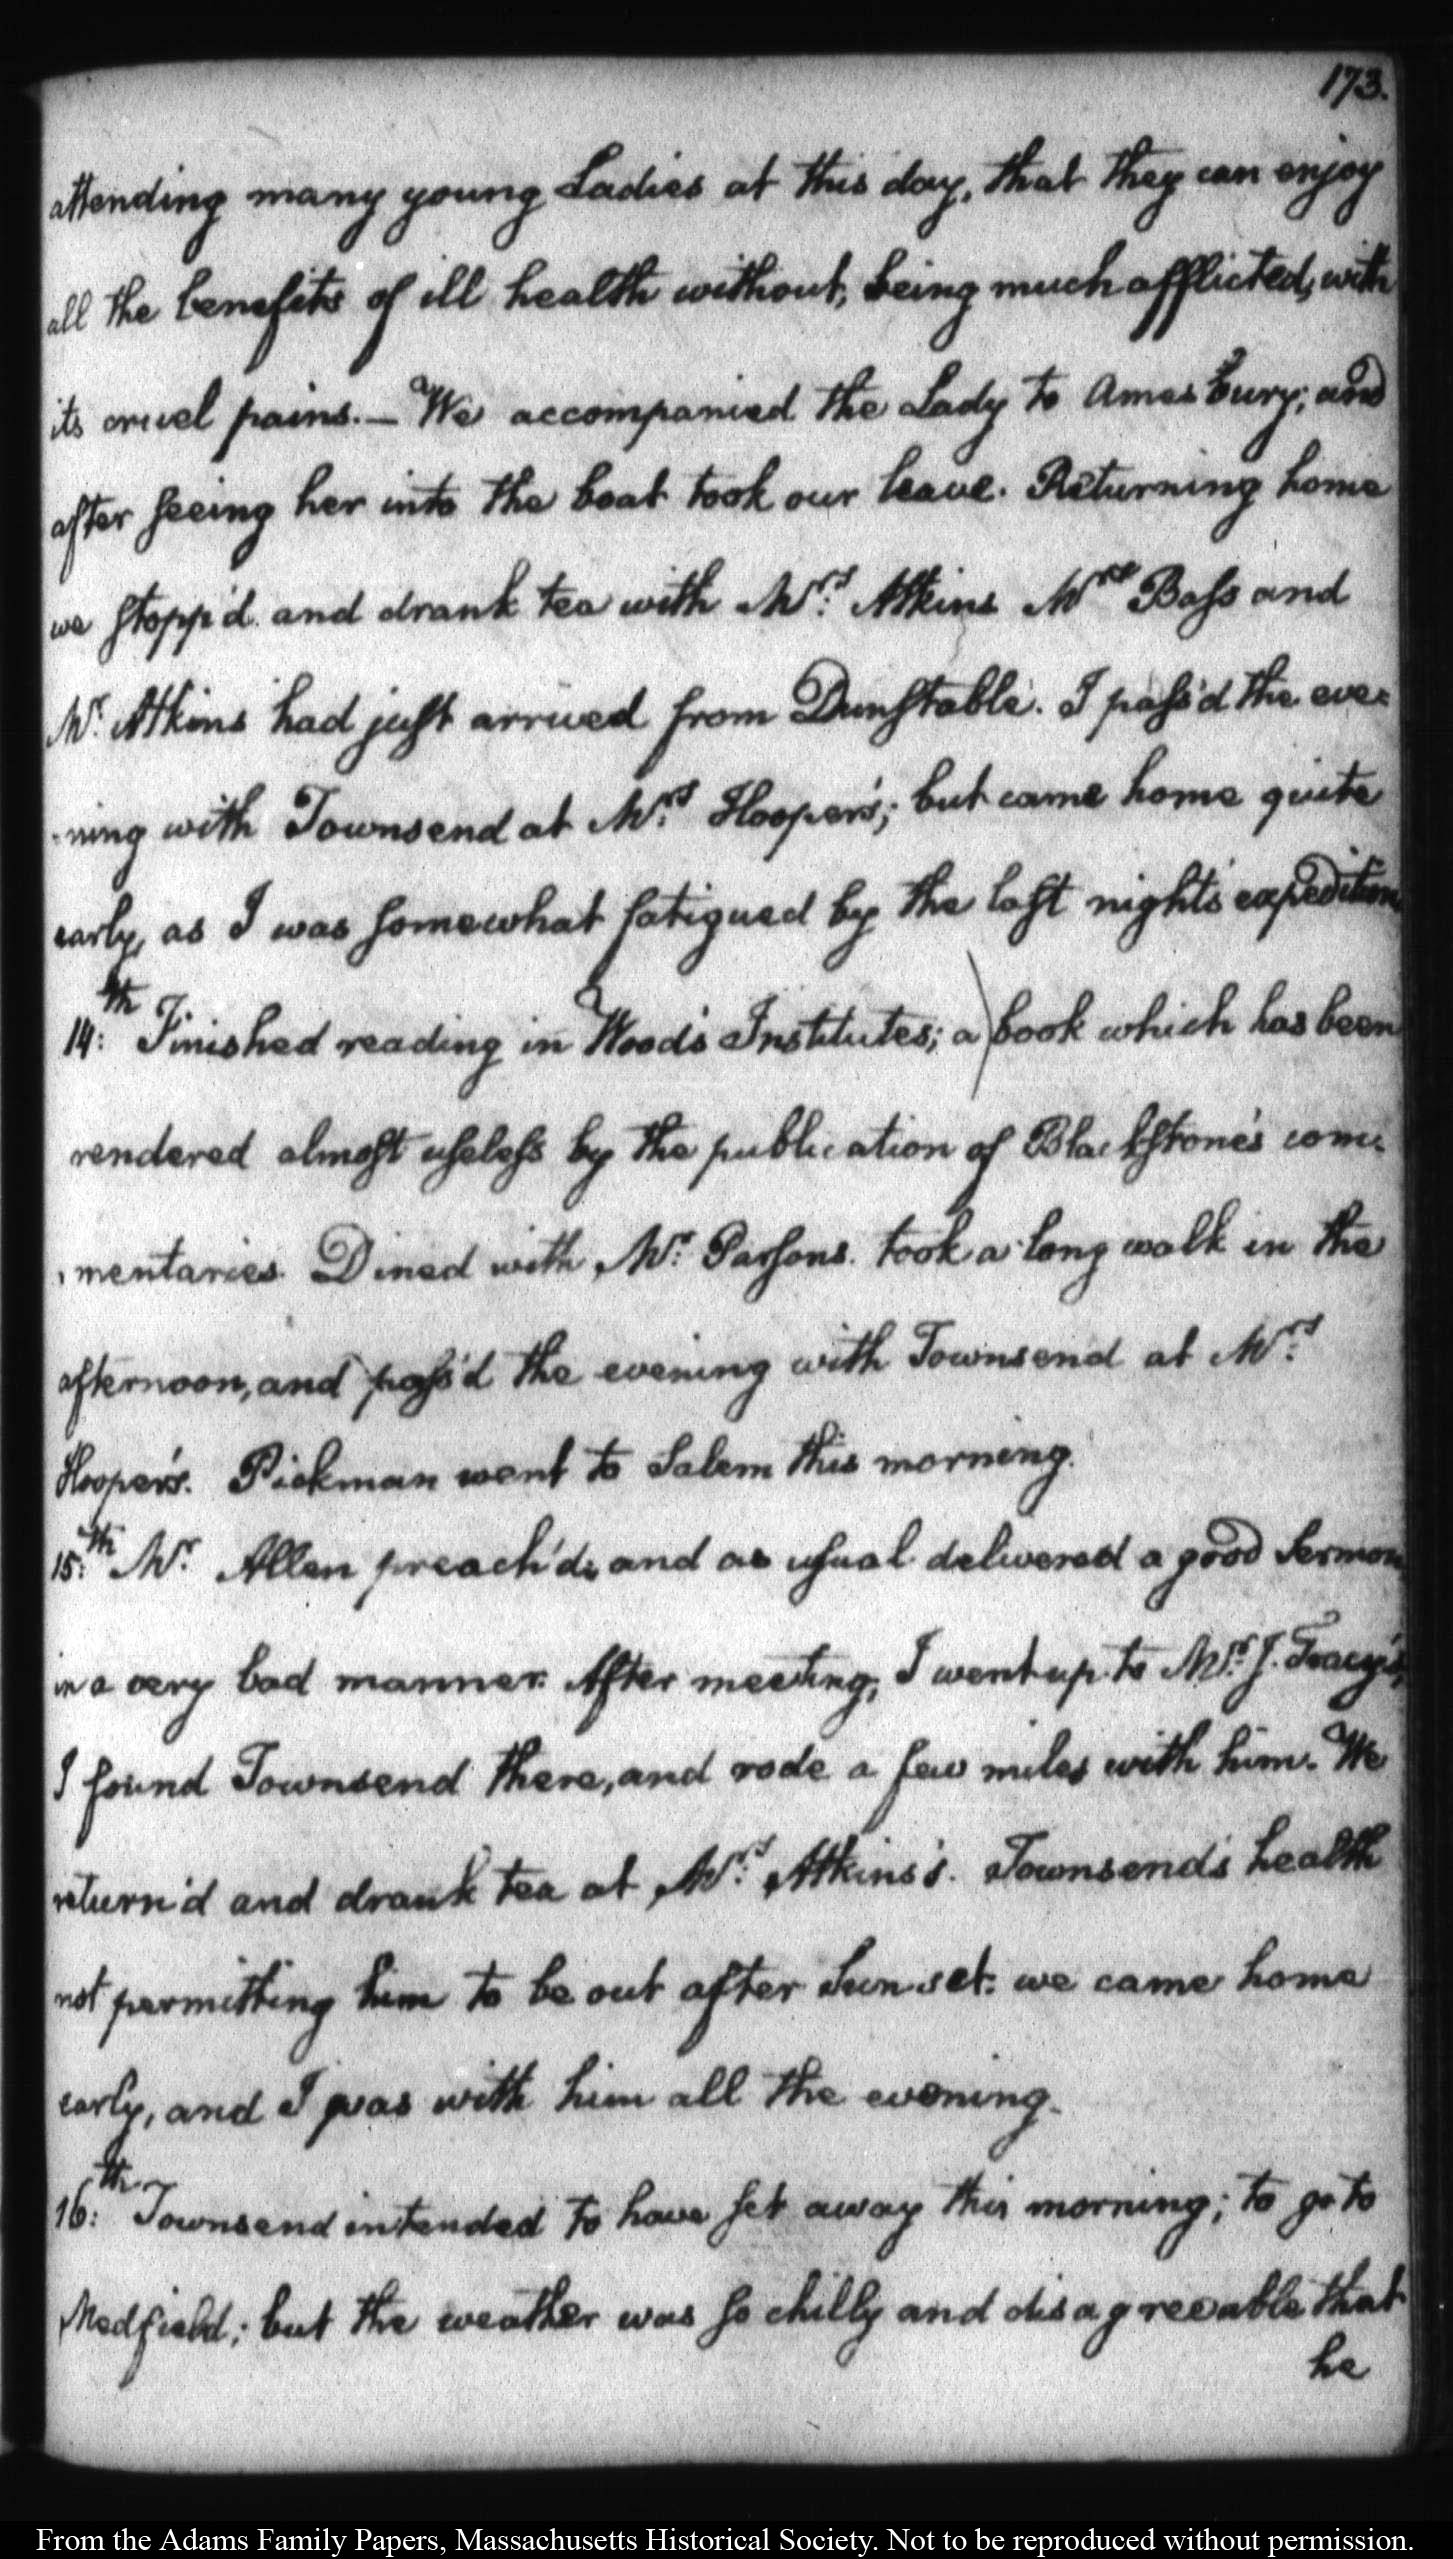 173.
attending many young Ladies at this day, that they can enjoy
all the benefits of ill health without, being much afflicted, with
its cruel pains. — We accompanied the Lady to Amesbury; and
after seeing her into the boat took our leave. Returning home
we stopp'd and drank tea with Mrs: Atkins Mrs Bass and
Mr: Atkins had just arrived from Dunstable. I pass'd the eve-
-ning with Townsend at Mrs: Hooper's; but came home quite
early, as I was somewhat fatigued by the last night's expedition
14:th Finished reading in Wood's Institutes; a book which has been
rendered almost useless by the publication of Blackstone's com-
-mentaries. Dined with Mr: Parsons. took a long walk in the
afternoon, and pass'd the evening with Townsend at Mrs:
Hooper's. Pickman went to Salem this morning.
15:th Mr Allen preach'd; and as usual delivered a good Sermon
in a very bad manner. After meeting, I went up to Mrs: J. Tracy's,
I found Townsend there, and rode a few miles with him. We
return'd and drank tea at Mrs: Atkins's. Townsend's health
not permitting him to be out after Sun set. we came home
early, and I was with him all the evening.
16:th Townsend intended to have set away this morning; to go to
Medfield; but the weather was so chilly and disagreeable that
he
From the Adams Family Papers, Massachusetts Historical Society. Not to be reproduced without permission.